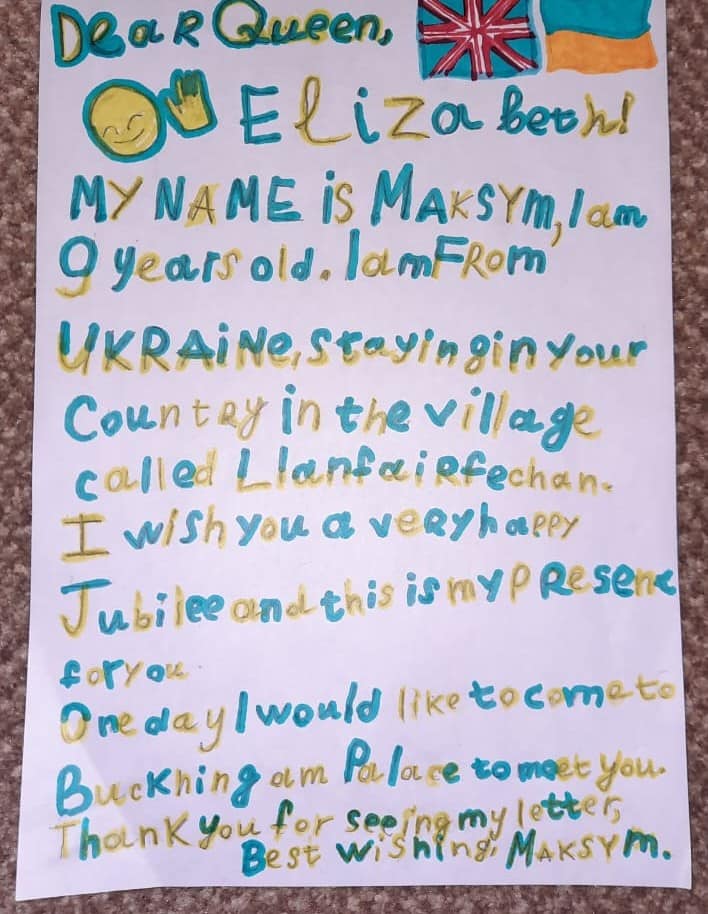 Dear Queen,
Elizabeth!
MY NAME iS MAKSYM, I am
9 years old. I am FRom
UKRAiNe, staying in your
Country in the village
called Llanfairfechan.
I wish you a very happy
Jubilee and this is my PResent
for you
One day I would like to come to
Buckhingam Palace to meet you.
Thank you for seeing my letter,
Best wishing, MAKSYM.